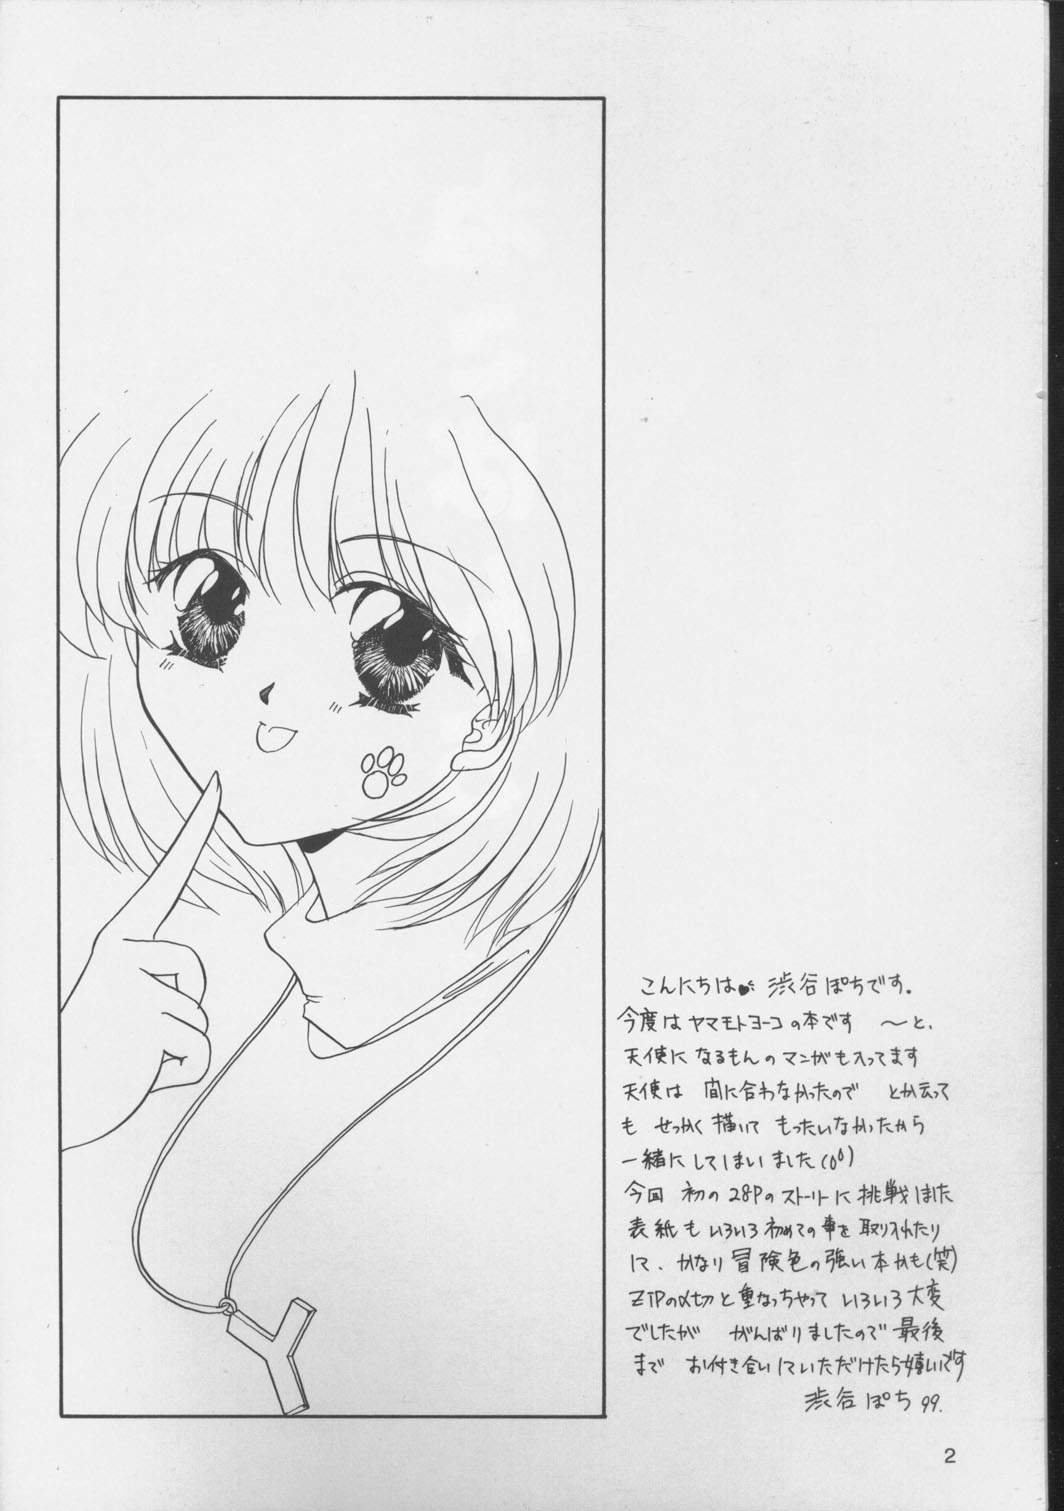 こんにちは 渋谷ぽちです。
今度はヤマモトヨーコの本です 〜と、
天使になるもんのマンガも入ってます
天使は 間に合わなかったので とか云って
も せっかく描いて もったいなかったから
一緒にしてしまいました
今回 初の28Pのストーリーに挑戦しました
表紙もいろいろ初めての事を取り入れたり
して、かなり冒険色の強い本かも(笑)
ZIPの〆切と重なっちゃって いろいろ大変
でしたが がんばりましたので最後
まで お付き合いしていただけたら嬉しいです
渋谷ぽち 99.
2